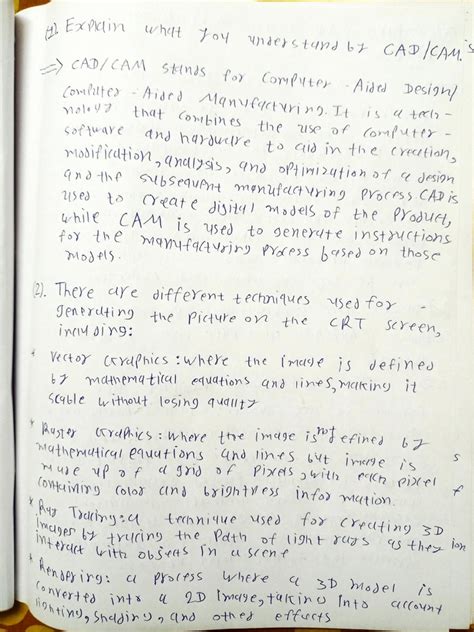 (1). Explain what you understand by CAD/CAM.
⇒ CAD/CAM stands for Computer - Aided Design/
Computer - Aided Manufacturing. It is a tech-
nology that combines the use of computer -
software and hardware to aid in the creation,
modification, analysis, and optimization of a design
and the subsequent manufacturing process CAD is
used to create digital models of the product,
while CAM is used to generate instructions
for the manufacturing process based on those
models.
(2). There are different techniques used for -
generating the picture on the CRT screen,
including:
* Vector Graphics: where the image is defined
by mathematical equations and lines, making it
scable without losing quality
* Raster Graphics: where the image is not defined by
mathematical equations and lines but image is
made up of a grid of pixels, with each pixel
containing color and brightness information.
* Ray Tracing: a technique used for creating 3D
images by tracing the path of light rays as they
interact with objects in a scene
* Rendering: a process where a 3D model is
converted into a 2D image, taking into account
lighting, shading, and other effects